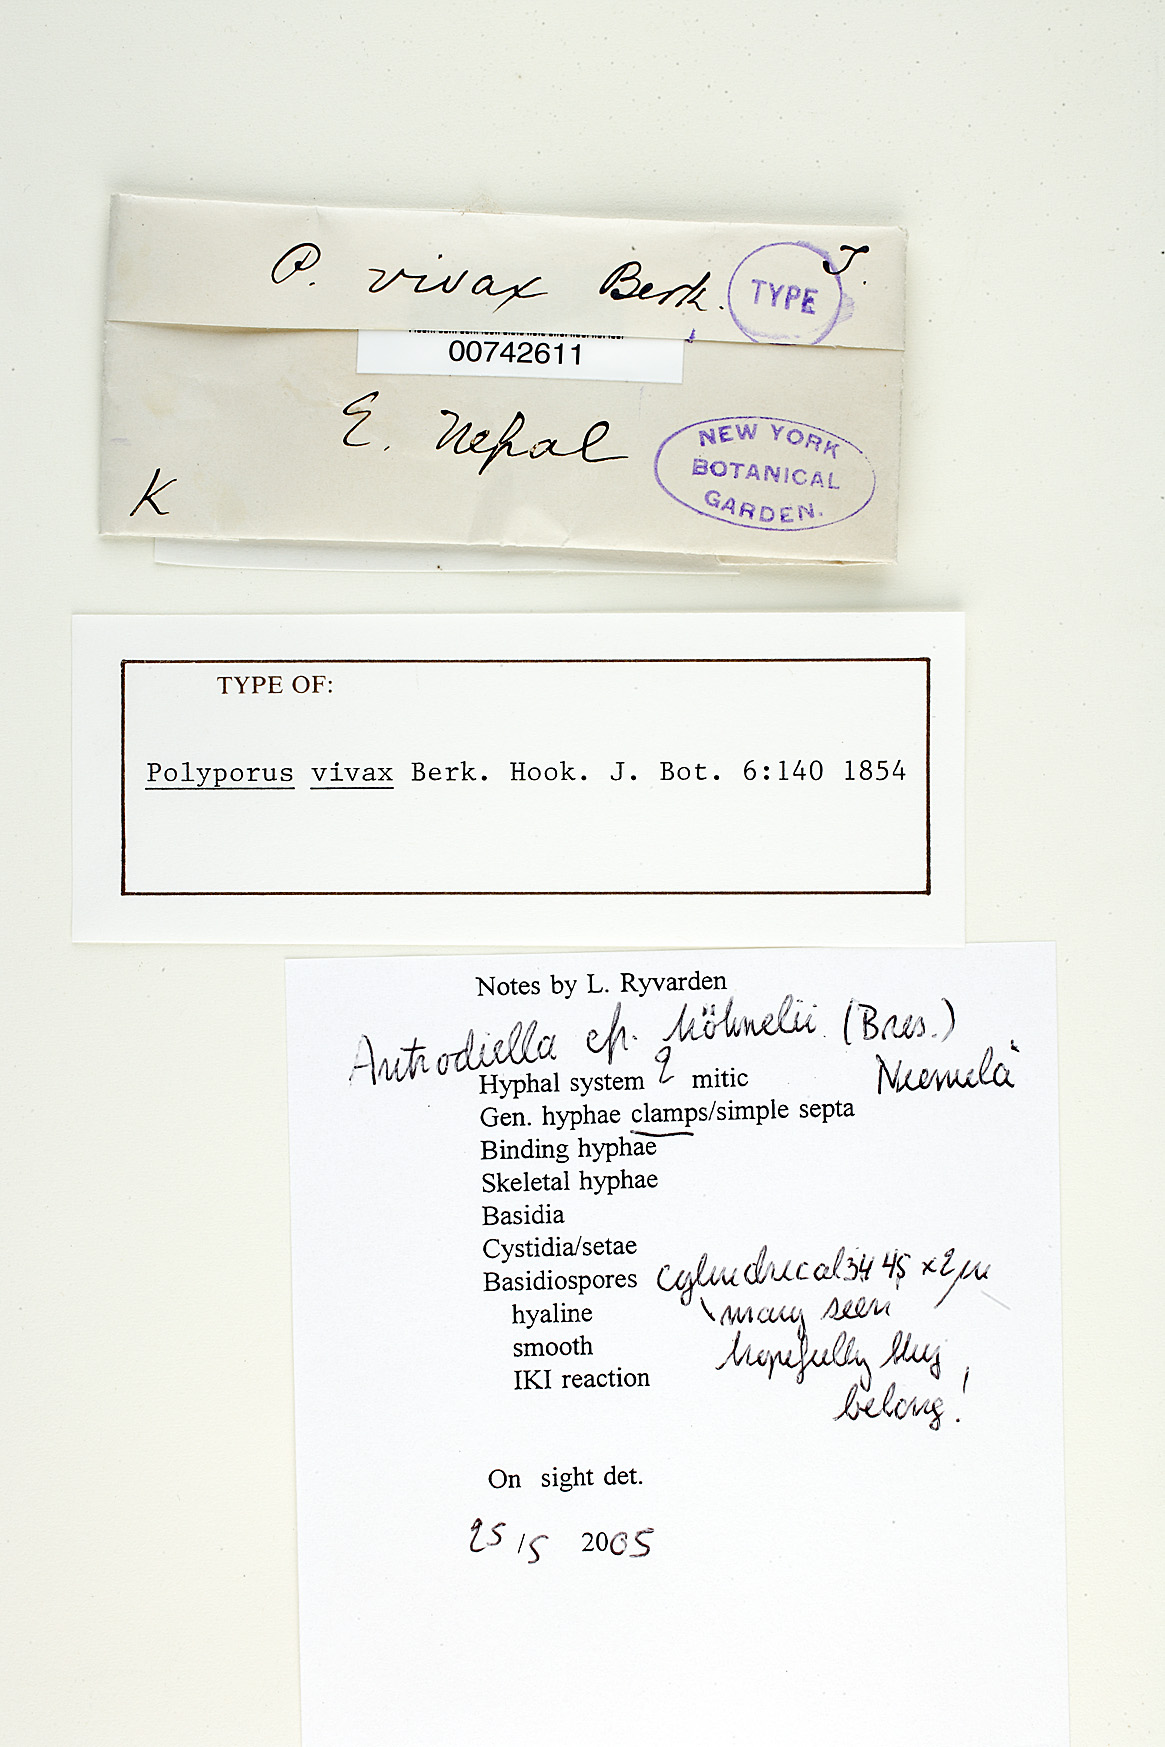 P. vivax Berk. T.
TYPE
00742611
E. Nepal
K
NEW YORK
BOTANICAL
GARDEN.
TYPE OF:
Polyporus vivax Berk. Hook. J. Bot. 6:140 1854
Notes by L. Ryvarden
Antrodiella cf. höhnelii (Bres.)
Niemelä
Hyphal system 2 mitic
Gen. hyphae clamps/simple septa
Binding hyphae
Skeletal hyphae
Basidia
Cystidia/setae
Basidiospores cylindrical x2 µm
hyaline many seen
smooth hopefully they
IKI reaction belong!
On sight det.
25/5 2005